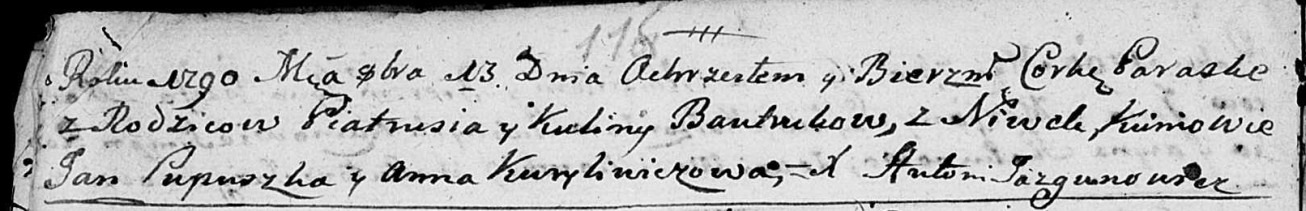 115
Roku 1790 Mca 8bra 13 Dnia Ochrzciłem y Bierzm Corkę Paraskę
z Rodzicow Piatrusia y Kuliny Bautrukow, z Niwek, Kumowie
Jan Pupuszka y Anna Kuryliwiczowa, = X Antoni Jazgunowicz